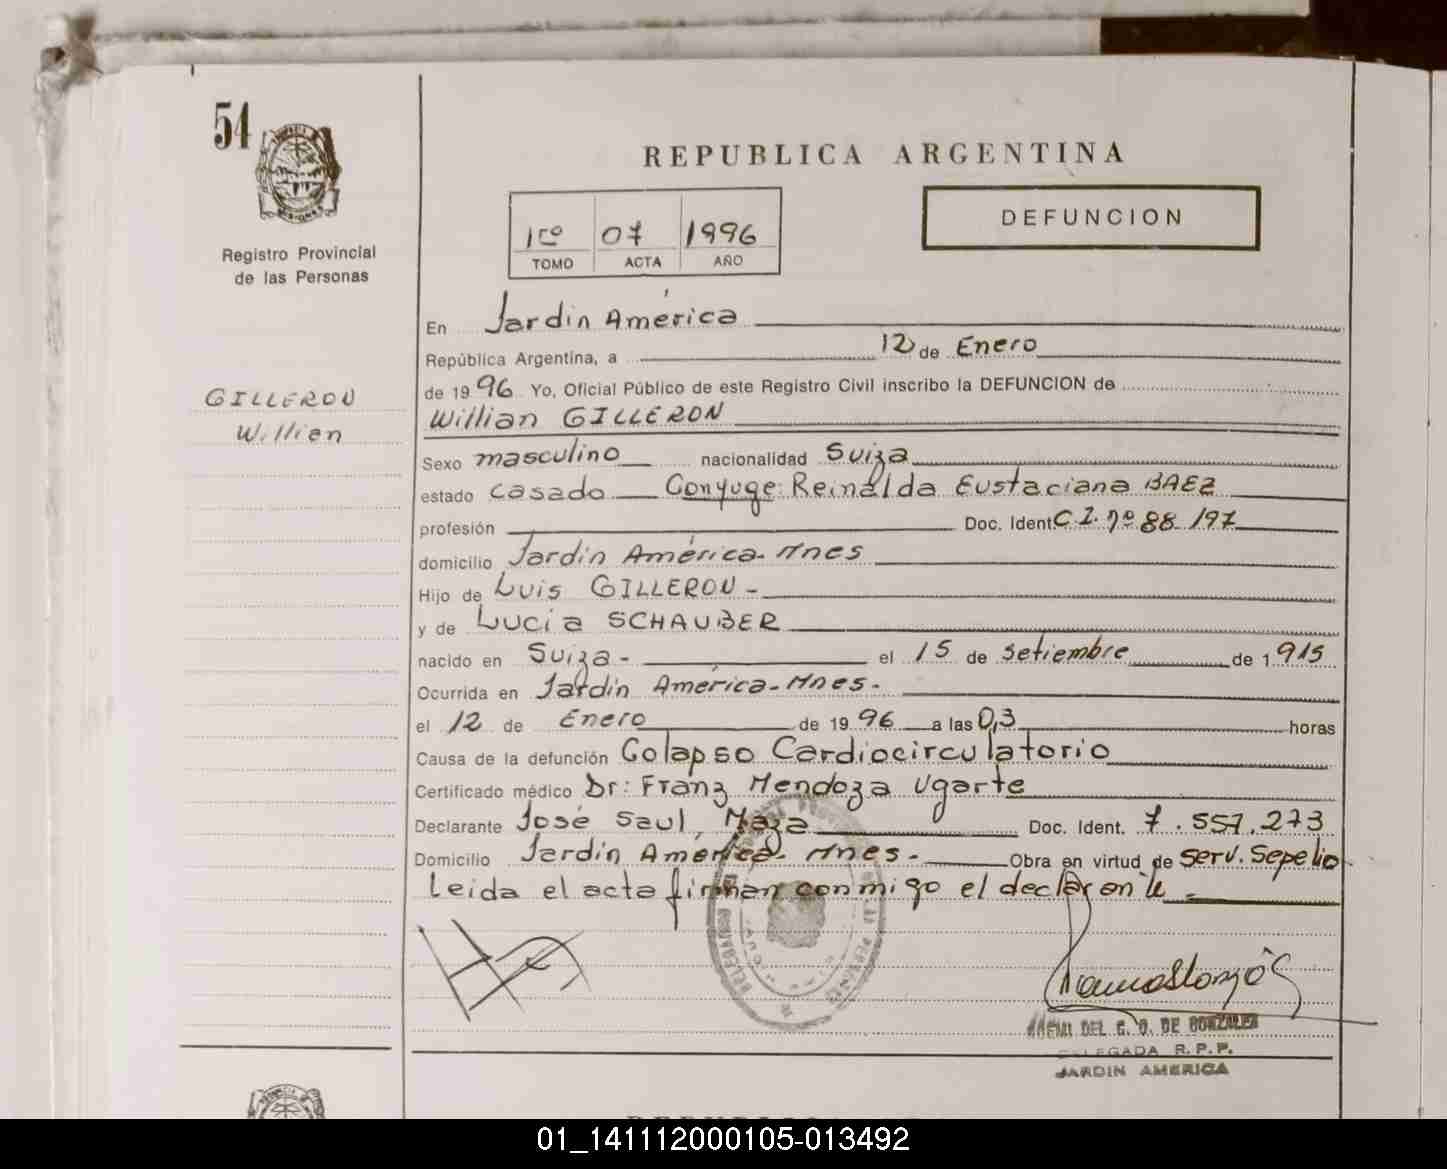 54
REPUBLICA ARGENTINA
DEFUNCION
1ro 07 1996
TOMO ACTA AÑO
Registro Provincial
de las Personas
GILLERON
Willian
En Jardín América
República Argentina, a 12 de Enero
de 1996 Yo, Oficial Público de este Registro Civil inscribo la DEFUNCION de
Willian GILLERON
Sexo masculino nacionalidad Suiza
estado casado Conyuge: Reinalda Eustaciana BAEZ
profesión Doc. Ident. C.I. nº 88 197
domicilio Jardín América - Mnes
Hijo de Luis GILLERON -
y de Lucía SCHAUBER
nacido en Suiza - el 15 de setiembre de 1915
Ocurrida en Jardín América - Mnes -
el 12 de Enero de 1996 a las 0,3 horas
Causa de la defunción Colapso Cardiocirculatorio
Certificado médico Dr: Franz Mendoza Ugarte
Declarante José Saul Maza Doc. Ident. 7.557.273
Domicilio Jardín América - Mnes - Obra en virtud de serv. Sepelio
Leida el acta firman conmigo el declarante -
DEL C. G. DE GONZALEZ
DELEGADA R.P.P.
JARDIN AMERICA
01_141112000105-013492